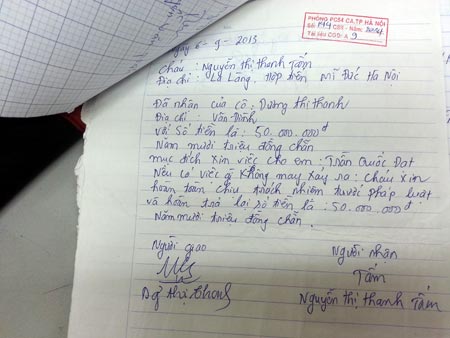 PHÒNG PC54 CA.TP HÀ NỘI
Số: 1944 CĐ8 - Năm: 2014
Tài liệu CĐĐ: A 9
Ngày 6 - 9 - 2013
Cháu: Nguyễn thị thanh Tấm
Địa chỉ: La Lãng, Hợp tiến Mĩ Đức Hà Nội
Đã nhận của cô Dương thị thanh
Địa chỉ: Vân Đình
với số tiền là: 50.000.000đ
Năm mươi triệu đồng chẵn
mục đích xin việc cho em: Trần Quốc Đạt
Nếu có việc gì không may xảy ra: Cháu xin
hoàn toàn chịu trách nhiệm trước pháp luật
và hoàn trả lại số tiền là: 50.000.000đ
Năm mươi triệu đồng chẵn.
Người giao
Người nhận
Tấm
Nguyễn thị thanh Tấm